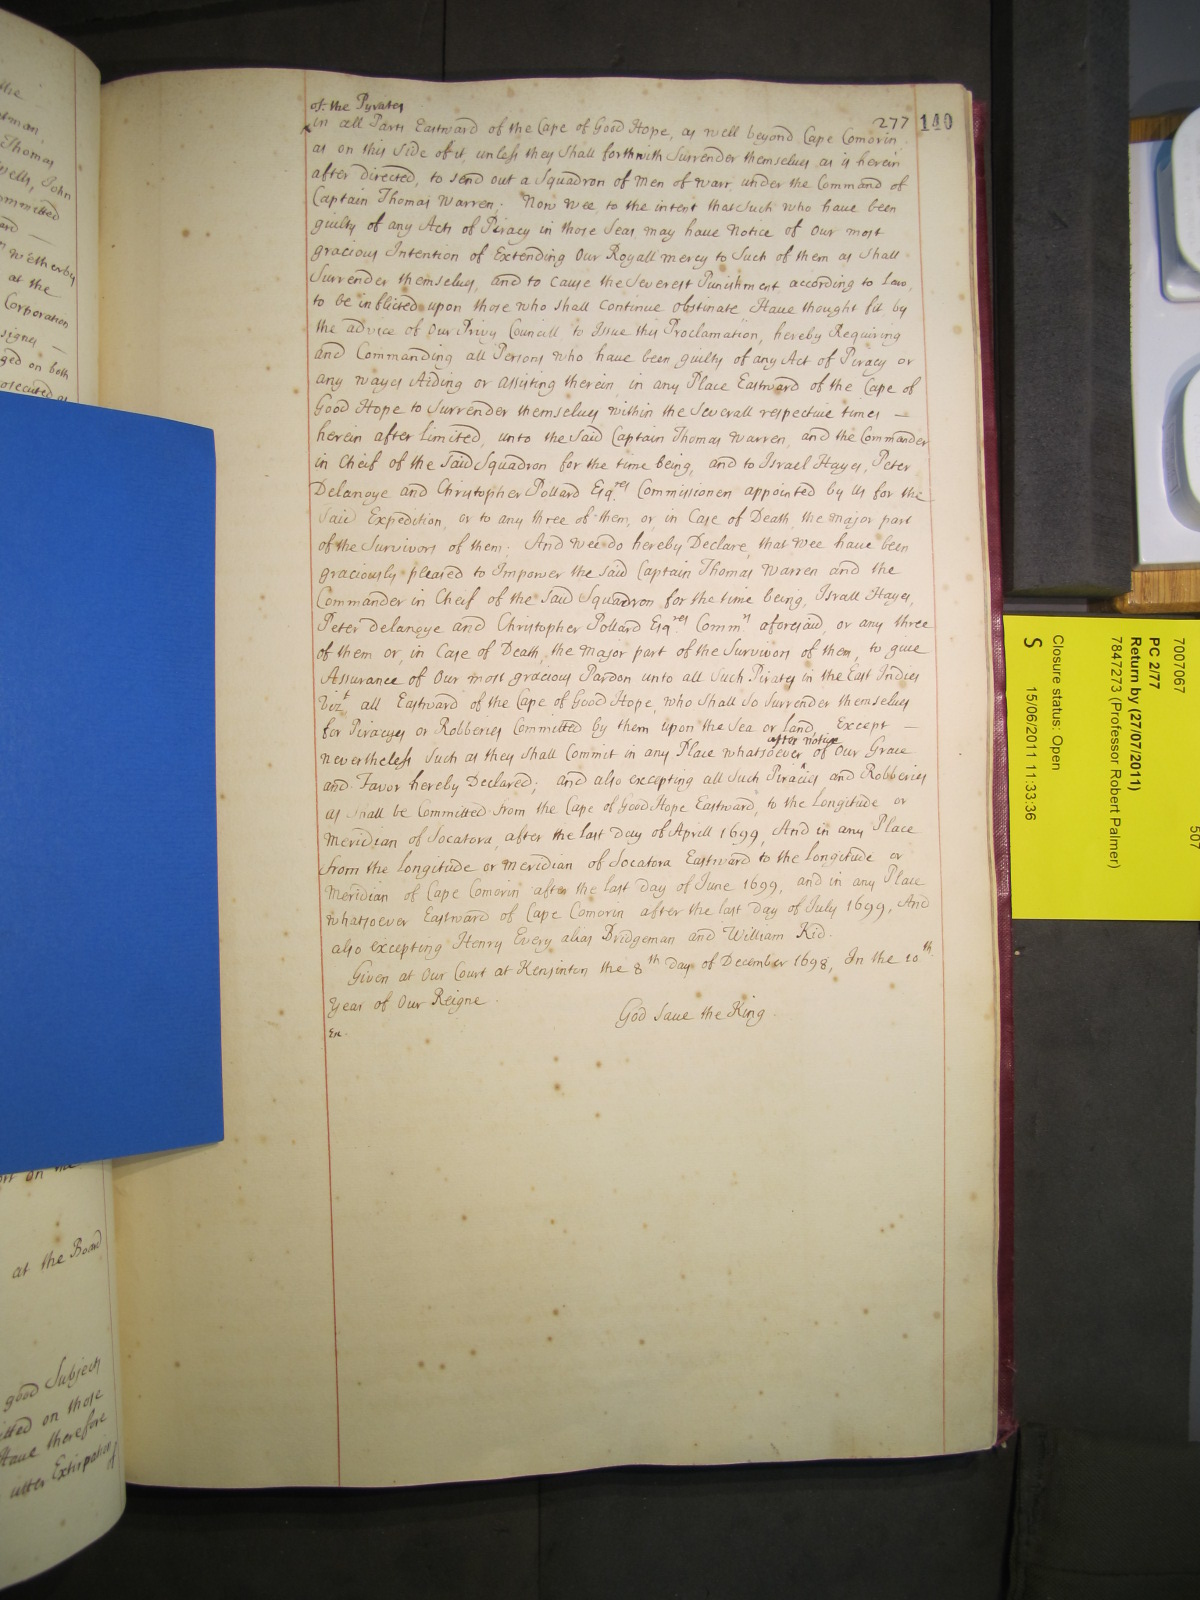 of the Pyrates
277 140
in all Parts Eastward of the Cape of Good Hope, as well beyond Cape Comorin
as on this Side of it, unless they Shall forthwith Surrender themselves as is herein
after directed, to send out a Squadron of Men of Warr under the Command of
Captain Thomas Warren; Now Wee to the intent that Such who have been
guilty of any Acts of Piracy in those Seas may have Notice of Our most
gracious Intention of Extending Our Royall mercy to Such of them as Shall
Surrender themselves, and to cause the Severest Punishment according to Law,
to be inflicted upon those who shall continue obstinate Have thought fit by
the advice of Our Privy Councill to Issue this Proclamation, hereby Requiring
and Commanding all Persons who have been guilty of any Act of Piracy or
any wayes Aiding or assisting therein in any Place Eastward of the Cape of
Good Hope to Surrender themselves within the Severall respective times —
herein after limited, unto the Said Captain Thomas Warren, and the Commander
in Cheif of the Said Squadron for the time being, and to Israel Hayes, Peter
Delanoye and Christopher Pollard Esqres Commissioners appointed by Us for the
Said Expedition, or to any three of them, or in Case of Death, the Major part
of the Survivors of them; And Wee do hereby Declare, that Wee have been
graciously pleased to Impower the said Captain Thomas Warren and the
Commander in Cheif of the Said Squadron for the time being, Israll Hayes,
Peter Delanoye and Christopher Pollard Esqres Commrs aforesaid, or any three
of them or, in Case of Death, the Major part of the Survivors of them, to give
Assurance of Our most gracious Pardon unto all Such Pirates in the East Indies
Vizt all Eastward of the Cape of Good Hope, who Shall So Surrender themselves
for Piracyes or Robberies Committed by them upon the Sea or land, Except —
after notice
nevertheless Such as they Shall Commit in any Place whatsoever of Our Grace
and Favor hereby Declared; and also excepting all Such Piracies and Robberies
as shall be Committed from the Cape of Good Hope Eastward, to the Longitude or
Meridian of Socatora, after the last Day of Aprill 1699, And in any Place
from the Longitude or Meridian of Socatora Eastward to the Longitude or
Meridian of Cape Comorin after the last Day of June 1699, and in any Place
whatsoever Eastward of Cape Comorin after the last Day of July 1699, And
also excepting Henry Every alias Bridgeman and William Kid.
Given at Our Court at Kensinton the 8th Day of December 1698, In the 10th
Year of Our Reigne
God Save the King
the
Thomas
John
Committed
Wetherby
at the
Corporation
ged on both
at the Board
good Subjects
on those
Have therefore
utter Extirpation
of
7007067
507
PC 2/77
Return by (27/07/2011)
7847273 (Professor Robert Palmer)
Closure status: Open
S 15/06/2011 11:33:36